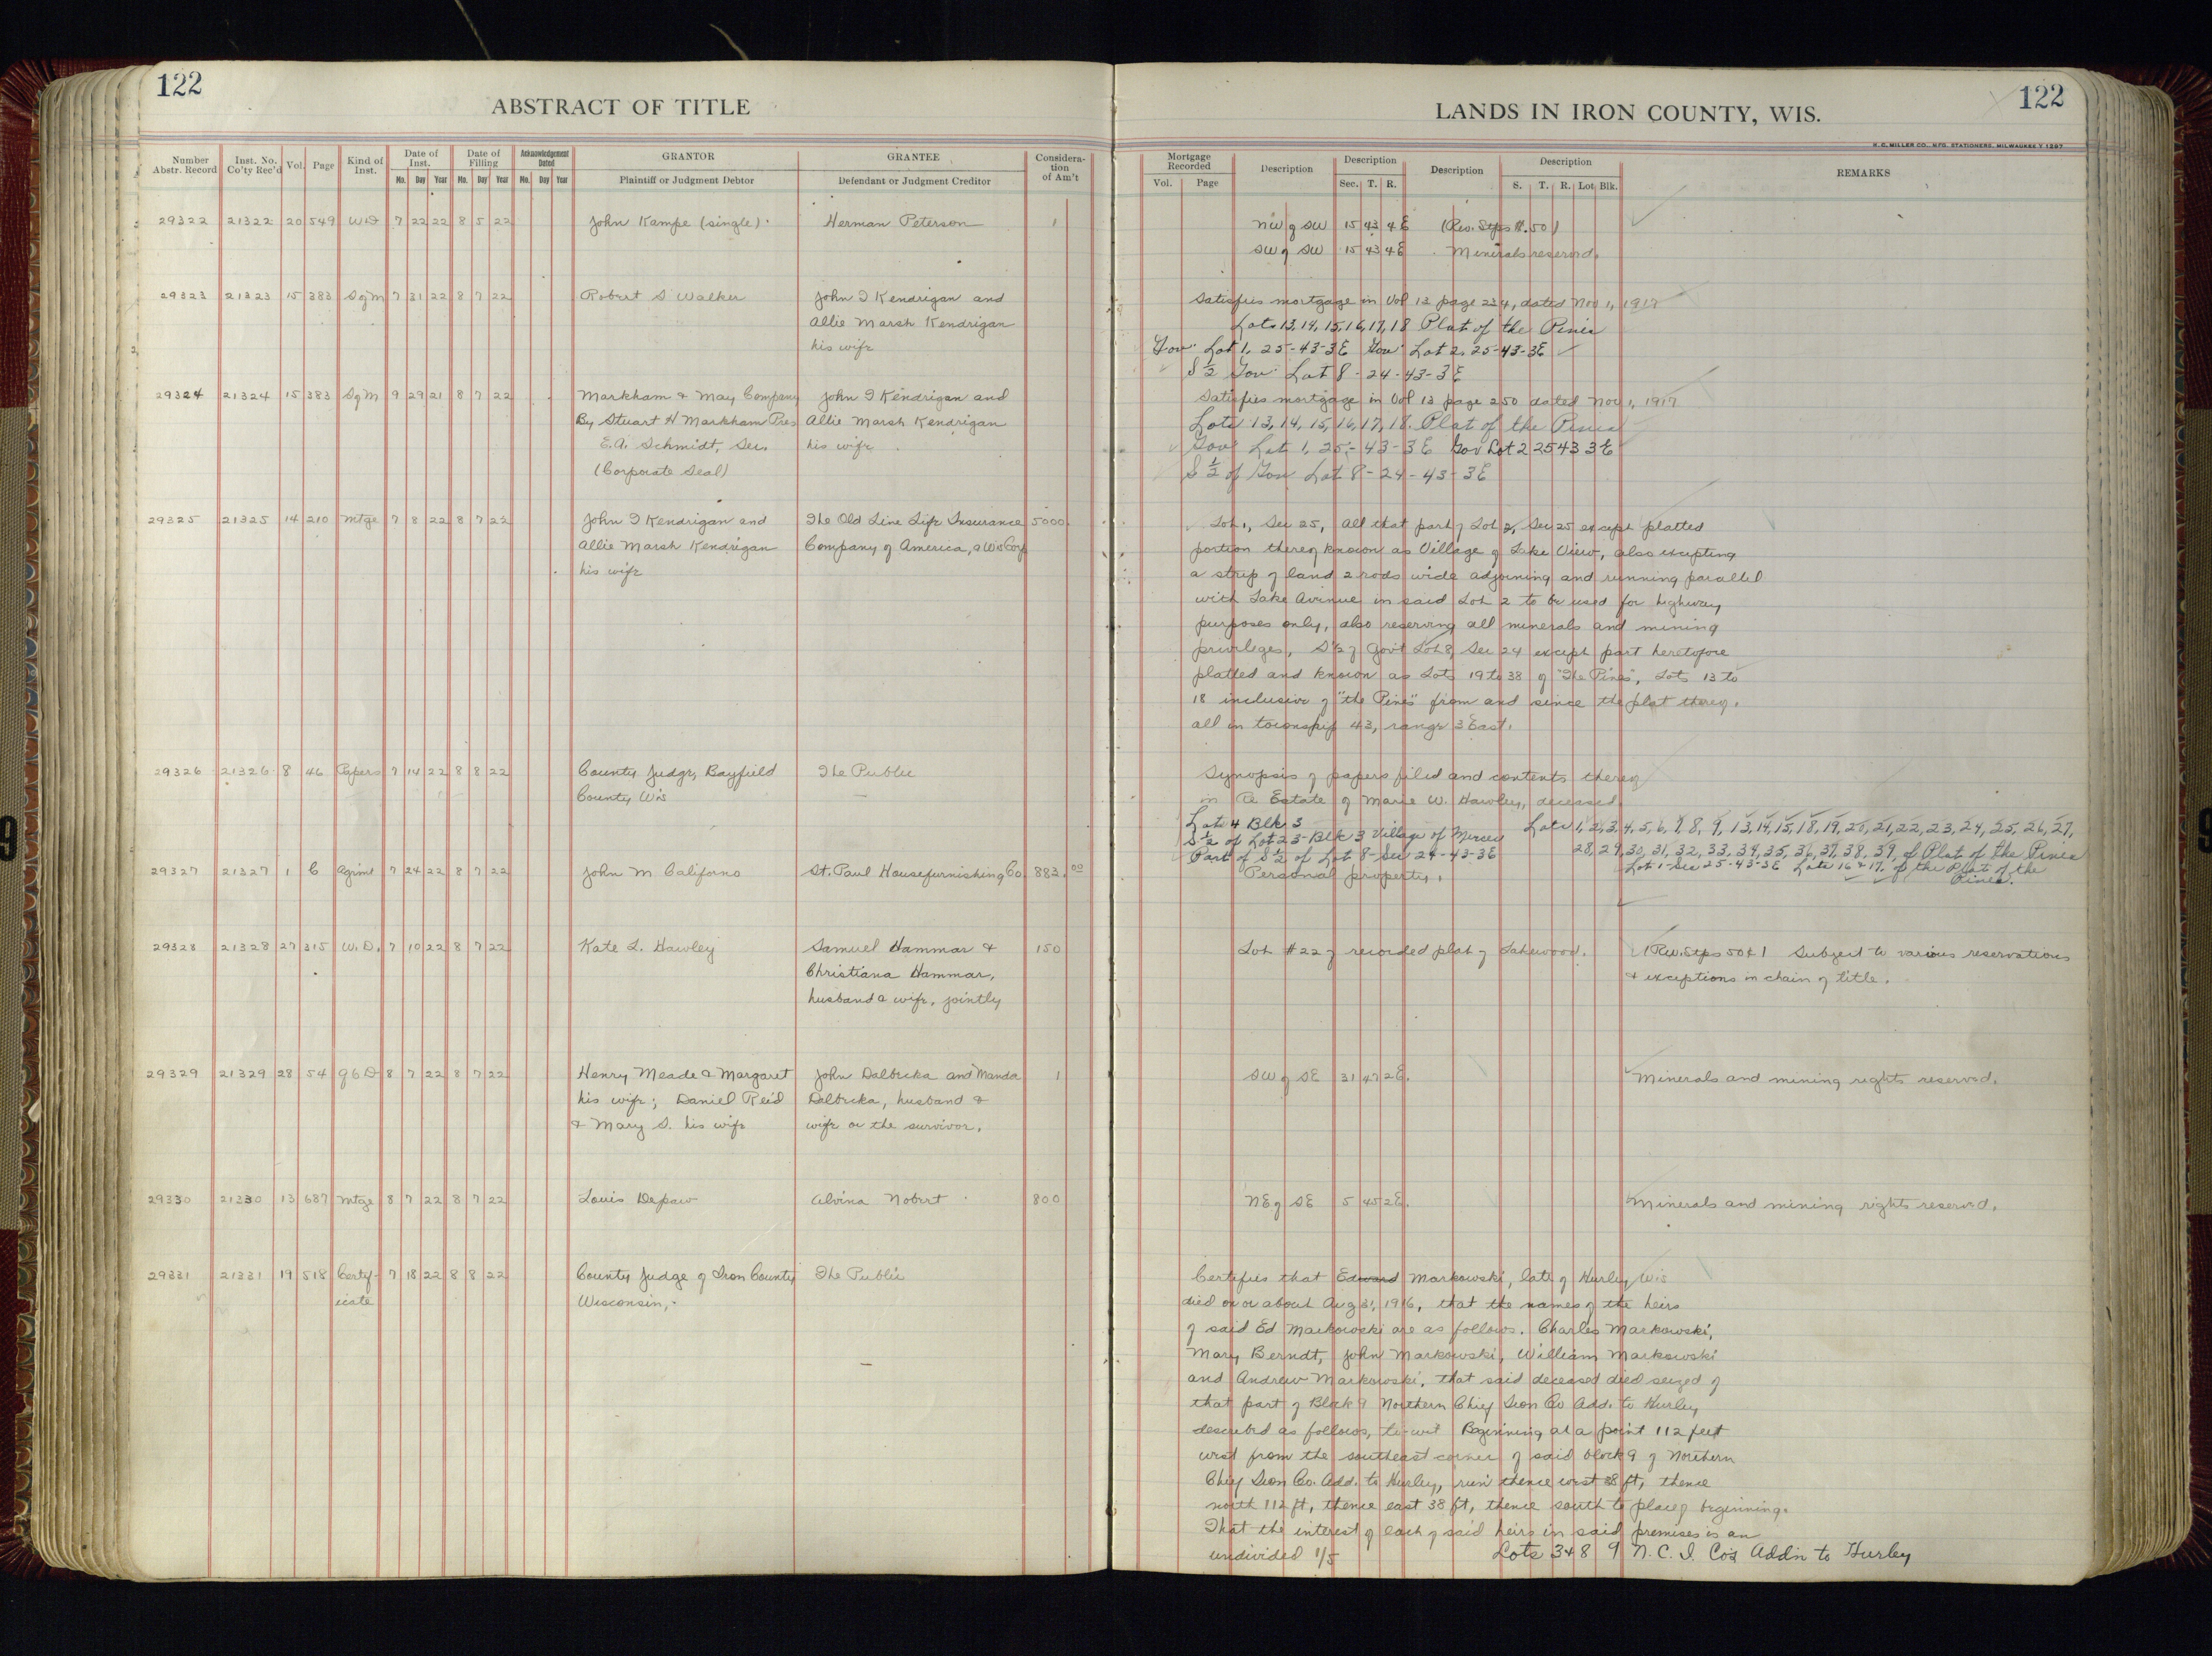 122
ABSTRACT OF TITLE
Number Abstr. Record Inst. No. Co'ty Rec'd Vol. Page Kind of Inst. Date of Inst. Mo. Day Year Date of Filling Mo. Day Year Acknowledgement Dated Mo. Day Year GRANTOR Plaintiff or Judgment Debtor GRANTEE Defendant or Judgment Creditor Considera-tion of Am't
29322 21322 20 549 WD 7 22 22 8 5 22 John Kampe (single) Herman Peterson 1
29323 21323 15 383 SgM 7 31 22 8 7 22 Robert S Walker John I Kendrigan and
Allie Marsh Kendrigan
his wife
29324 21324 15 383 SgM 9 29 21 8 7 22 Markham & May Company John I Kendrigan and
By Stuart H Markham Pres Allie Marsh Kendrigan
E.A. Schmidt, Sec. his wife
(Corporate Seal)
29325 21325 14 210 Mtge 7 8 22 8 7 22 John I Kendrigan and The Old Line Life Insurance 5000
Allie Marsh Kendrigan Company of America, a Wis Corp
his wife
29326 21326 8 46 Papers 7 14 22 8 8 22 County Judge, Bayfield The Public
County Wis
29327 21327 1 6 Agrmt 7 24 22 8 7 22 John M Californo St. Paul Housefurnishing Co. 883.00
29328 21328 27 315 W.D. 7 10 22 8 7 22 Kate L. Hawley Samuel Hammar & 150
Christiana Hammar,
husband & wife, jointly
29329 21329 28 54 QCD 8 7 22 8 7 22 Henry Meade & Margaret John Dalbicka and Manda 1
his wife; Daniel Reid Dalbicka, husband &
& Mary S. his wife wife or the survivor.
29330 21330 13 637 Mtge 8 7 22 8 7 22 Louis Depaw Alvina Nobert 800
29331 21331 19 518 Certif- 7 18 22 8 8 22 County Judge of Iron County The Public
icate Wisconsin,
LANDS IN IRON COUNTY, WIS.
122
H. C. MILLER CO. MFG. STATIONERS, MILWAUKEE Y 1297
Mortgage Recorded Vol. Page Description Description Sec. T. R. Description Description S. T. R. Lot Blk. REMARKS
NW of SW 15 43 4E (Rev. Stps $.50)
SW of SW 15 43 4E Minerals reserved.
Satisfies mortgage in Vol 12 page 234, dated Nov 1, 1917
Lots 13, 14, 15, 16, 17, 18 Plat of the Pines
Gov. Lot 1, 25-43-3E Gov. Lot 2, 25-43-3E
S 1/2 Gov. Lot 8-24-43-3E
Satisfies mortgage in Vol 13 page 250 dated Nov 1, 1917
Lots 13, 14, 15, 16, 17, 18. Plat of the Pines
Gov. Lot 1, 25-43-3E Gov Lot 2 25 43 3E
S 1/2 of Gov Lot 8-24-43-3E
Lot 1, Sec 25, All that part of Lot 2, Sec 25 except platted
portion thereof known as Village of Lake View, also excepting
a strip of land 2 rods wide adjoining and running parallel
with Lake Avenue in said Lot 2 to be used for highway
purposes only, also reserving all minerals and mining
privileges, S 1/2 of Gov't Lot 8, Sec 24 except part heretofore
platted and known as Lots 19 to 38 of "The Pines", Lots 13 to
18 inclusive of "the Pines" from and since the plat thereof.
all in township 43, range 3 East.
Synopsis of papers filed and contents thereof
in Re Estate of Marie W. Hawley, deceased
Lots 4 Blk 3 Lots 1, 2, 3, 4, 5, 6, 7, 8, 9, 13, 14, 15, 18, 19, 20, 21, 22, 23, 24, 25, 26, 27,
S 1/2 of Lot 23-Blk 3 Village of Mercer 28, 29, 30, 31, 32, 33, 34, 35, 36, 37, 38, 39, of Plat of the Pines
Part of S 1/2 of Lot 8-Sec 24-43-3E Lot 1-Sec 25-43-3E Lots 16 & 17. of the Plat of the
Personal property. Pines.
Lot #22 of recorded plat of Lakewood. (Rev. Stps 50¢) Subject to various reservations
& exceptions in chain of title.
SW of SE 31 47 2E. Minerals and mining rights reserved.
NE of SE 5 45 2E. Minerals and mining rights reserved.
Certifies that Edward Markowski, late of Hurley Wis
died on or about Aug 31, 1916, that the names of the heirs
of said Ed Markowski are as follows. Charles Markowski,
Mary Berndt, John Markowski, William Markowski
and Andrew Markowski, that said deceased died seized of
that part of Block 9 Northern Chief Iron Co Add. to Hurley
described as follows, to-wit Beginning at a point 112 feet
west from the southeast corner of said block 9 of Northern
Chief Iron Co. Add. to Hurley, run thence west 38 ft, thence
north 112 ft, thence east 38 ft, thence south to place of beginning.
That the interest of each of said heirs in said premises is an
undivided 1/5 Lots 3 & 8 9 N. C. I. Co's Add'n to Hurley